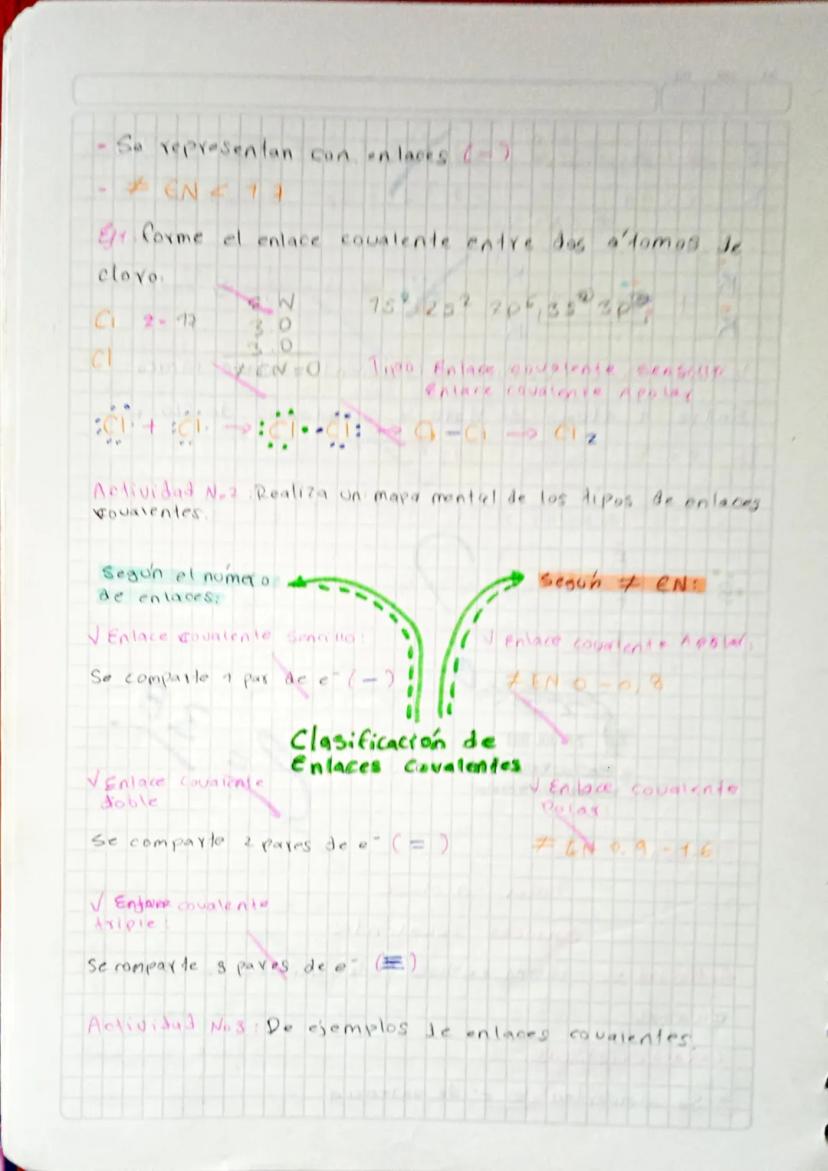 - Se representan con enlaces (-)
- ≠ EN < 1 7
Ej: forme el enlace covalente entre dos átomos de
cloro.
Cl z - 17
Cl
E N
3 0
3.0
≠ EN = 0
1s² 2s² 2p⁶, 3s² 3p
Tipo: Enlace covalente sencillo
Enlace covalente Apolar
:Cl· + :Cl· → :Cl··Cl: → Cl - Cl → Cl₂
Actividad No.2: Realiza un mapa mental de los tipos de enlaces
covalentes.
Según el número
de enlaces:
Según ≠ EN:
√ Enlace covalente sencillo:
Se comparte 1 par de e⁻ (-)
√ enlace covalente Apolar:
≠ EN 0 - 0,8
Clasificación de
Enlaces Covalentes
√ Enlace covalente
doble
Se comparte 2 pares de e⁻ (=)
√ Enlace covalente
Polar
≠ EN 0.9 - 1.6
√ Enlace covalente
triple:
Se comparte 3 pares de e⁻ (≡)
Actividad No.3: De ejemplos de enlaces covalentes.